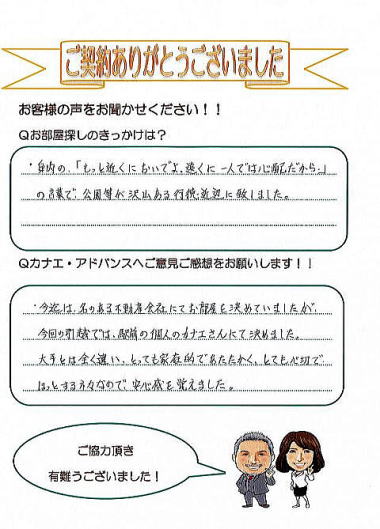 ご契約ありがとうございました
お客様の声をお聞かせください！！
Qお部屋探しのきっかけは？
・身内の、「もっと近くにおいでよ。遠くに一人では心配だから・」
の言葉で、公園等が沢山ある行徳近辺に致しました。
Qカナエ・アドバンスへご意見ご感想をお願いします！！
・今迄は、名のある不動産会社にてお部屋を決めていましたが、
今回の引越では、駅前の個人のカナエさんにて決めました。
大手とは全く違い、とっても家庭的であたたかく、とても心切で
ほっとする方々なので、安心感を覚えました。
ご協力頂き
有難うございました！